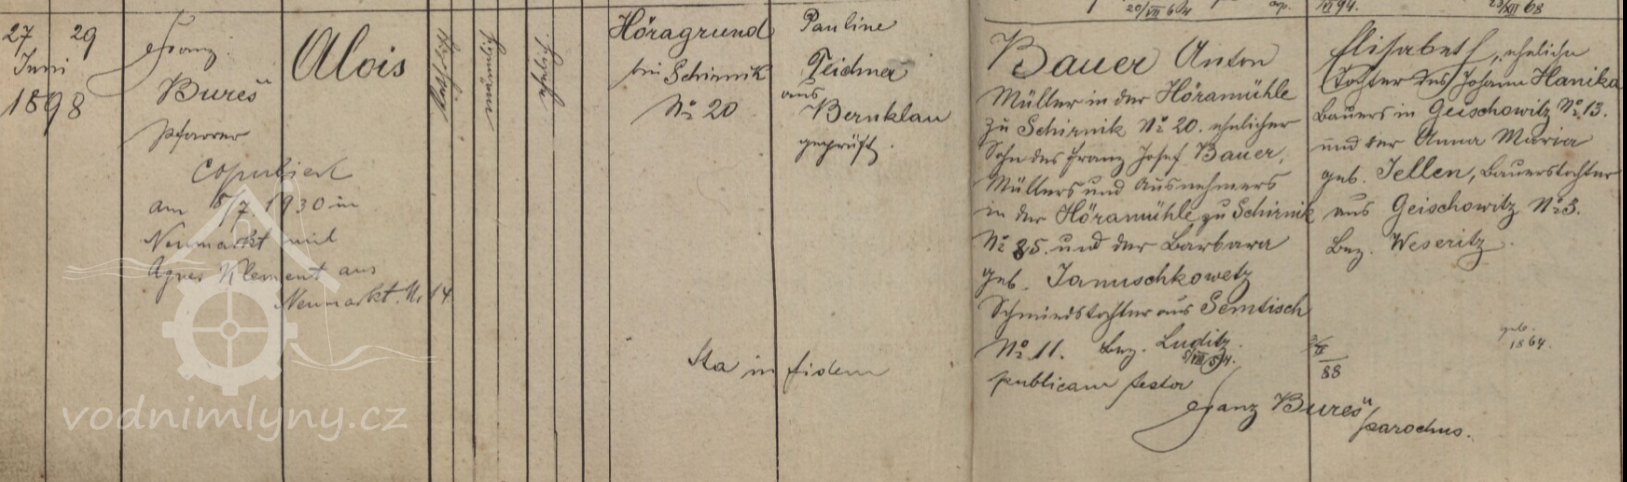 27 29
Juni
1898
Franz
Bureš
Pfarrer
Copuliert
am 5/7 1930 in
Neumarkt mit
Agnes Klement aus
Neumarkt Nr 14.
Alois
katholisch
männlich
ehelich.
Höragrund
bei Schirnik
No 20
Pauline
Teichner
aus
Bernklau
geprüft.
Ita in fidem
20/VII 64 ap. 94. 23/XII 68
Bauer Anton
Müller in der Höramühle
zu Schirnik No 20. ehelicher
Sohn des Franz Josef Bauer,
Müllers und Ausnehmers
in der Höramühle zu Schirnik
No 25. und der Barbara
geb. Januschkowetz
Schmiedstochter aus Semtisch
No 11. Bez. Luditz.
publicam testor
Franz Bureš
parochus.
Elisabeth, eheliche
Tochter des Johann Hanika
Bauers in Geischowitz No 13.
und der Anna Maria
geb. Jellen, Bauerstochter
aus Geischowitz No 3.
Bez. Weseritz.
geb.
1864.
88
vodnimlyny.cz